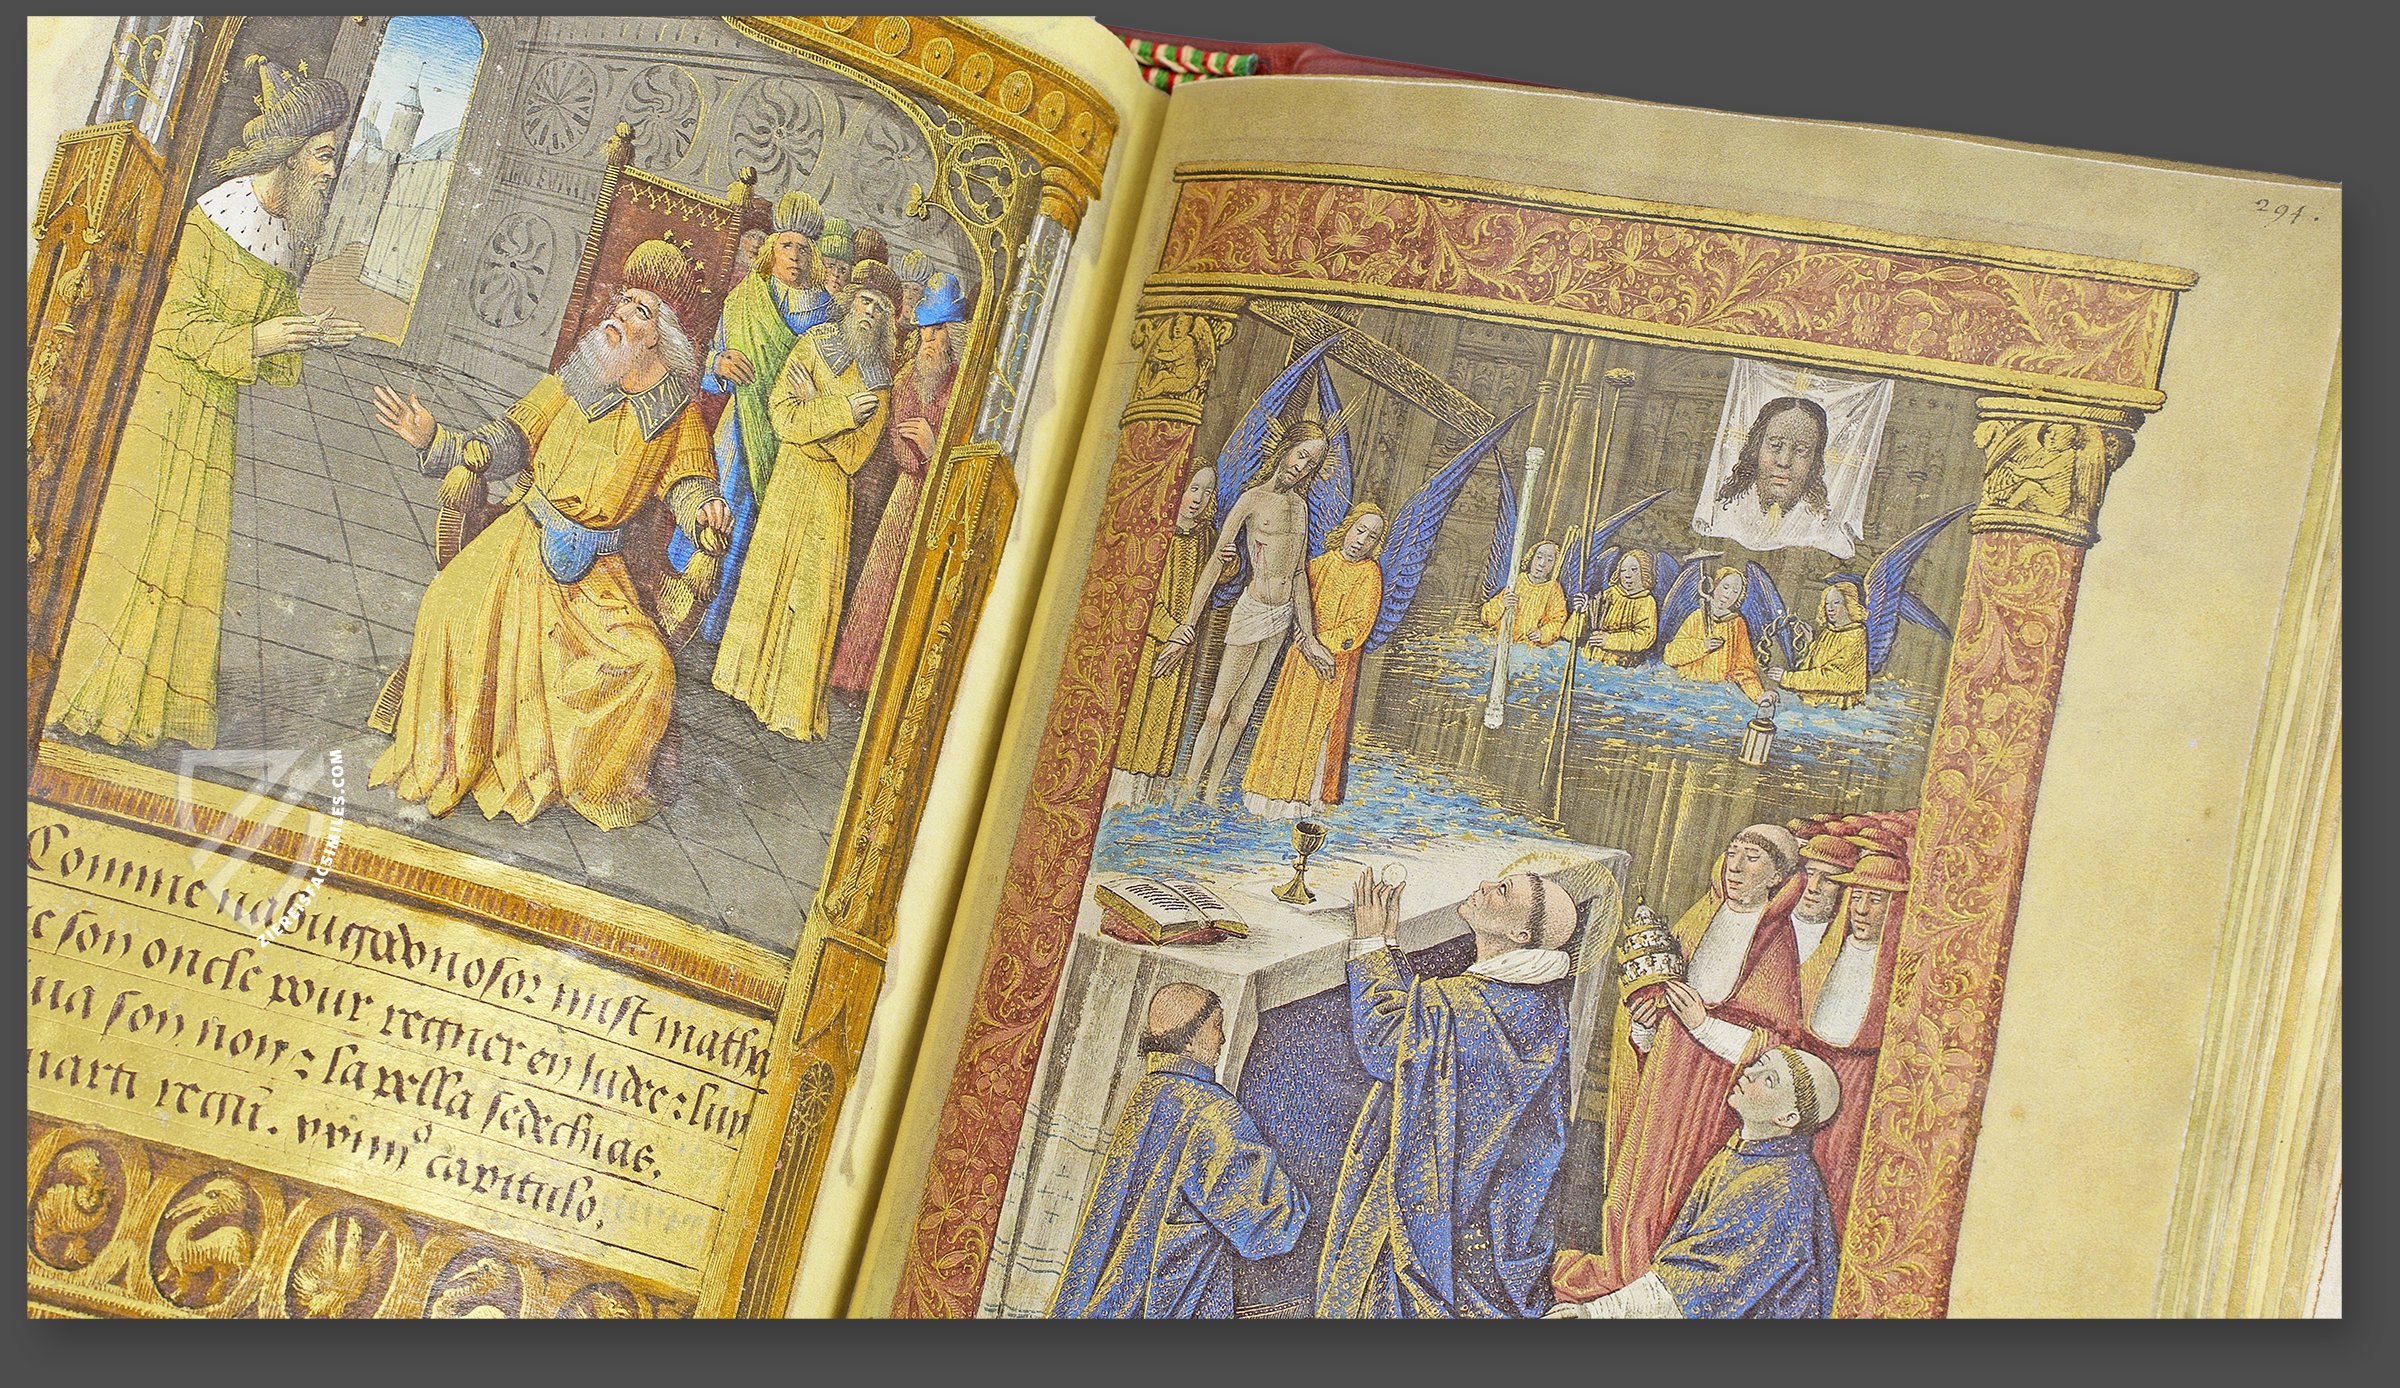 Comme nabugodnosor mist matha
son oncle pour regner en Judee : luy
son nom : lapella sedechias.
quarti regũ. primᵒ capitulo.
294.
ZIEREISFACSIMILES.COM